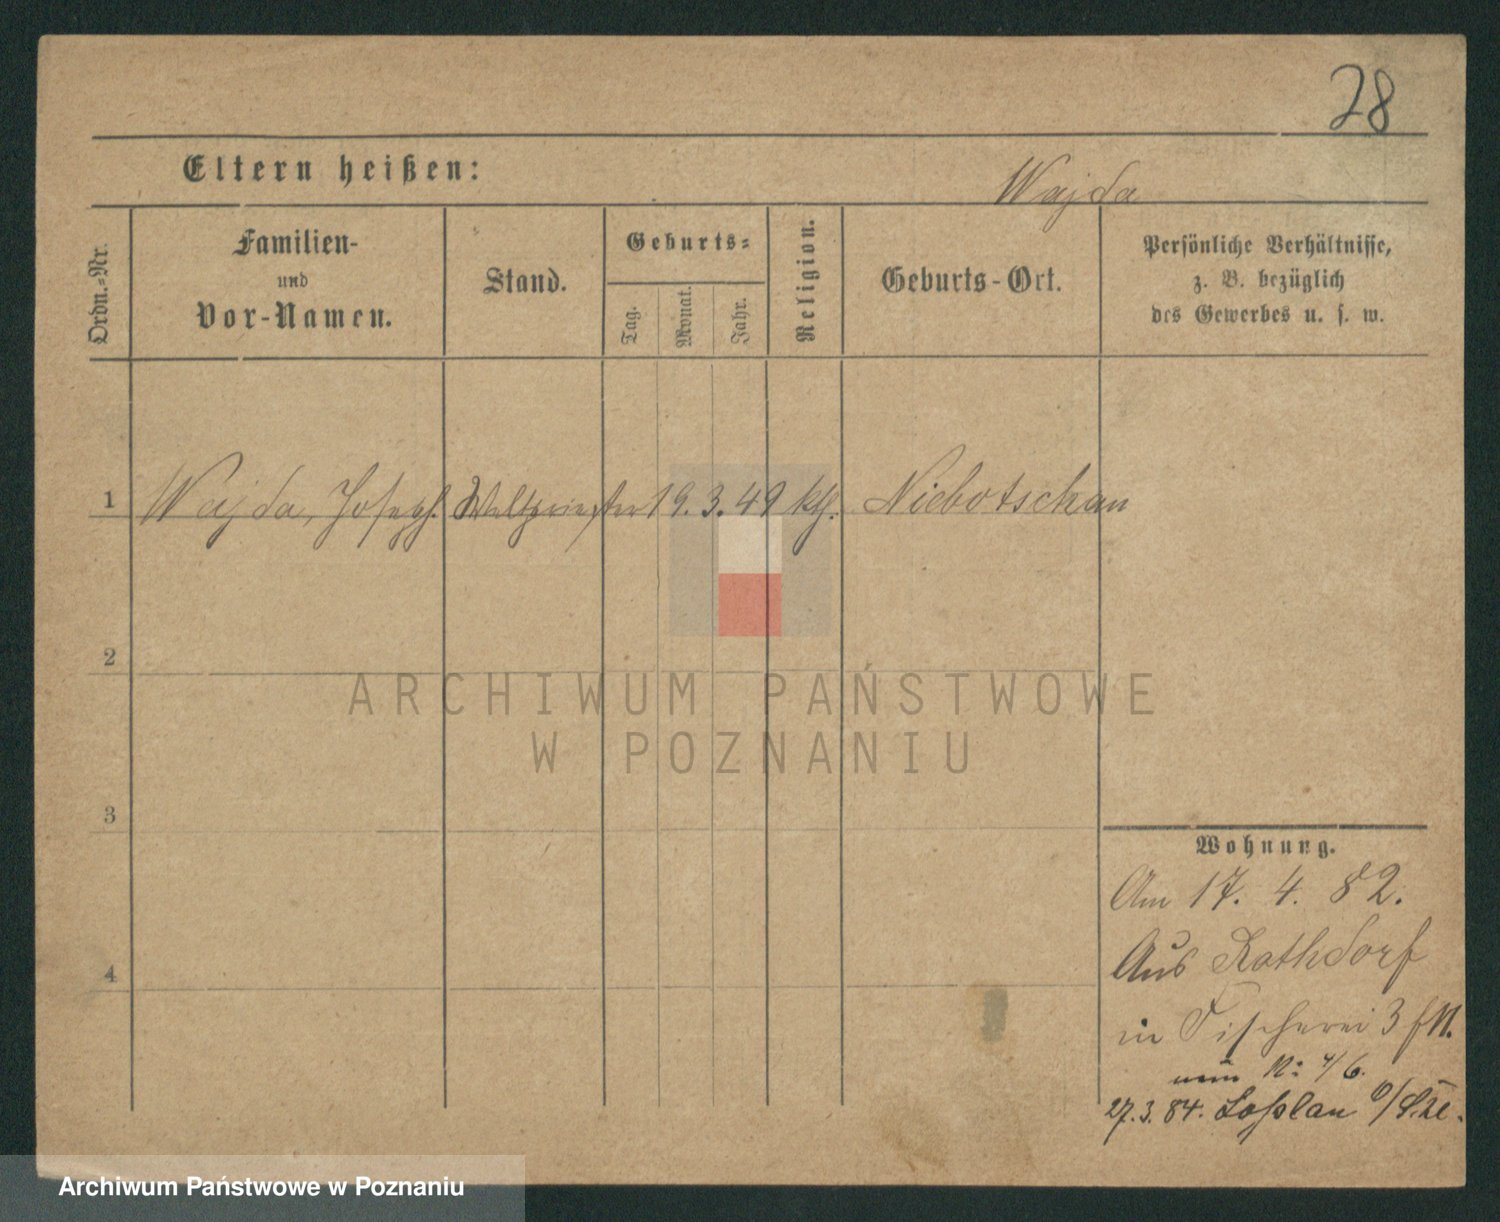 28
Eltern heißen:
Wajda
Ordn.-Nr.
Familien-
und
Vor-Namen.
Stand.
Geburts-
Tag.
Monat.
Jahr.
Religion.
Geburts-Ort.
Persönliche Verhältnisse,
z. B. bezüglich
des Gewerbes u. s. w.
1 Wajda, Joseph. Weltpriester 19. 3. 49 kth. Niebotschau
2
ARCHIWUM PAŃSTWOWE
W POZNANIU
3
4
Wohnung.
Am 17. 4. 82.
Aus Rathdorf
in Fischerei 3
N: 4/6.
27.3.84. Loslau O/
Archiwum Państwowe w Poznaniu